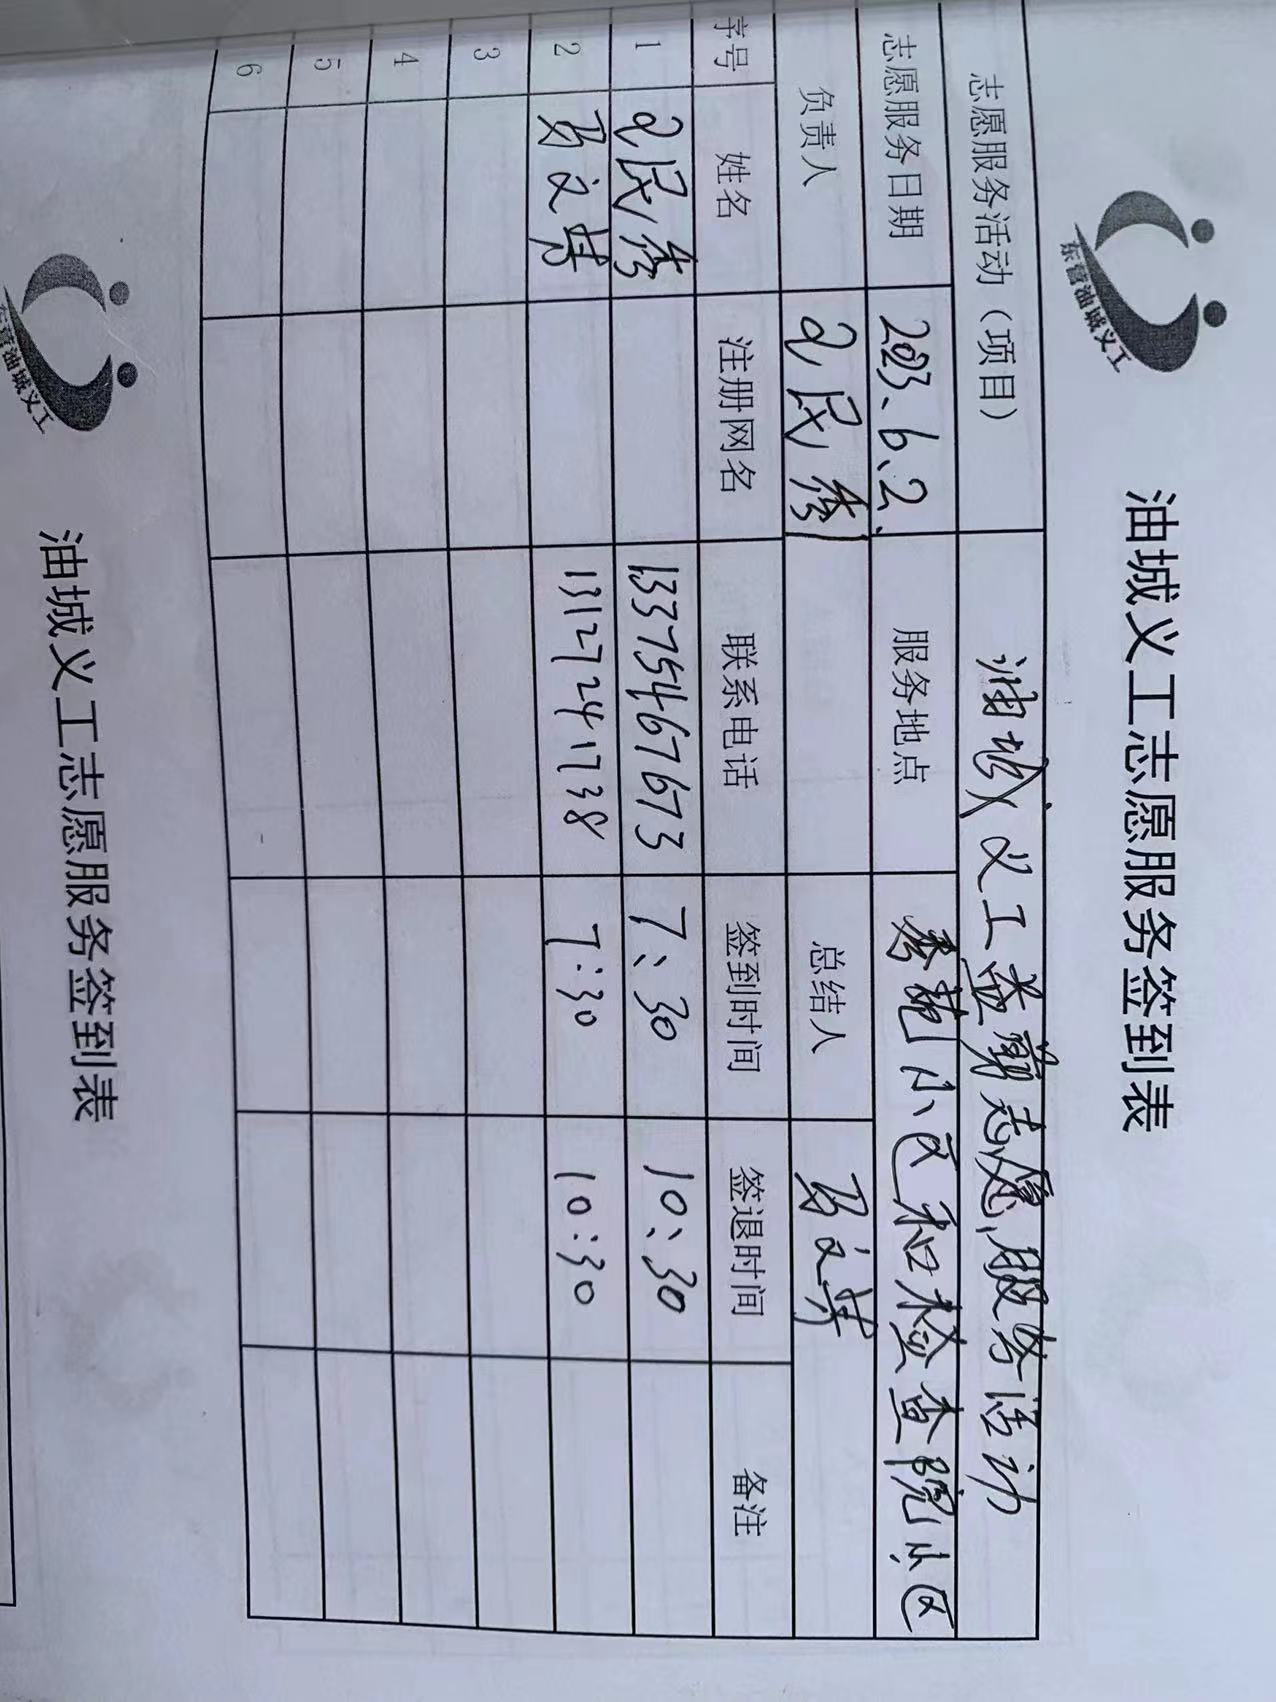 东营油城义工
油城义工志愿服务签到表
志愿服务活动（项目） 油城义工 志愿服务活动
志愿服务日期 2023、6、2、 服务地点 秀苑小区和检查院小区
负责人 民秀 总结人 马文
序号 姓名 注册网名 联系电话 签到时间 签退时间 备注
1 民秀 13375467673 7：30 10：30
2 马文 13127241738 7：30 10：30
3
4
5
6
东营油城义工
油城义工志愿服务签到表